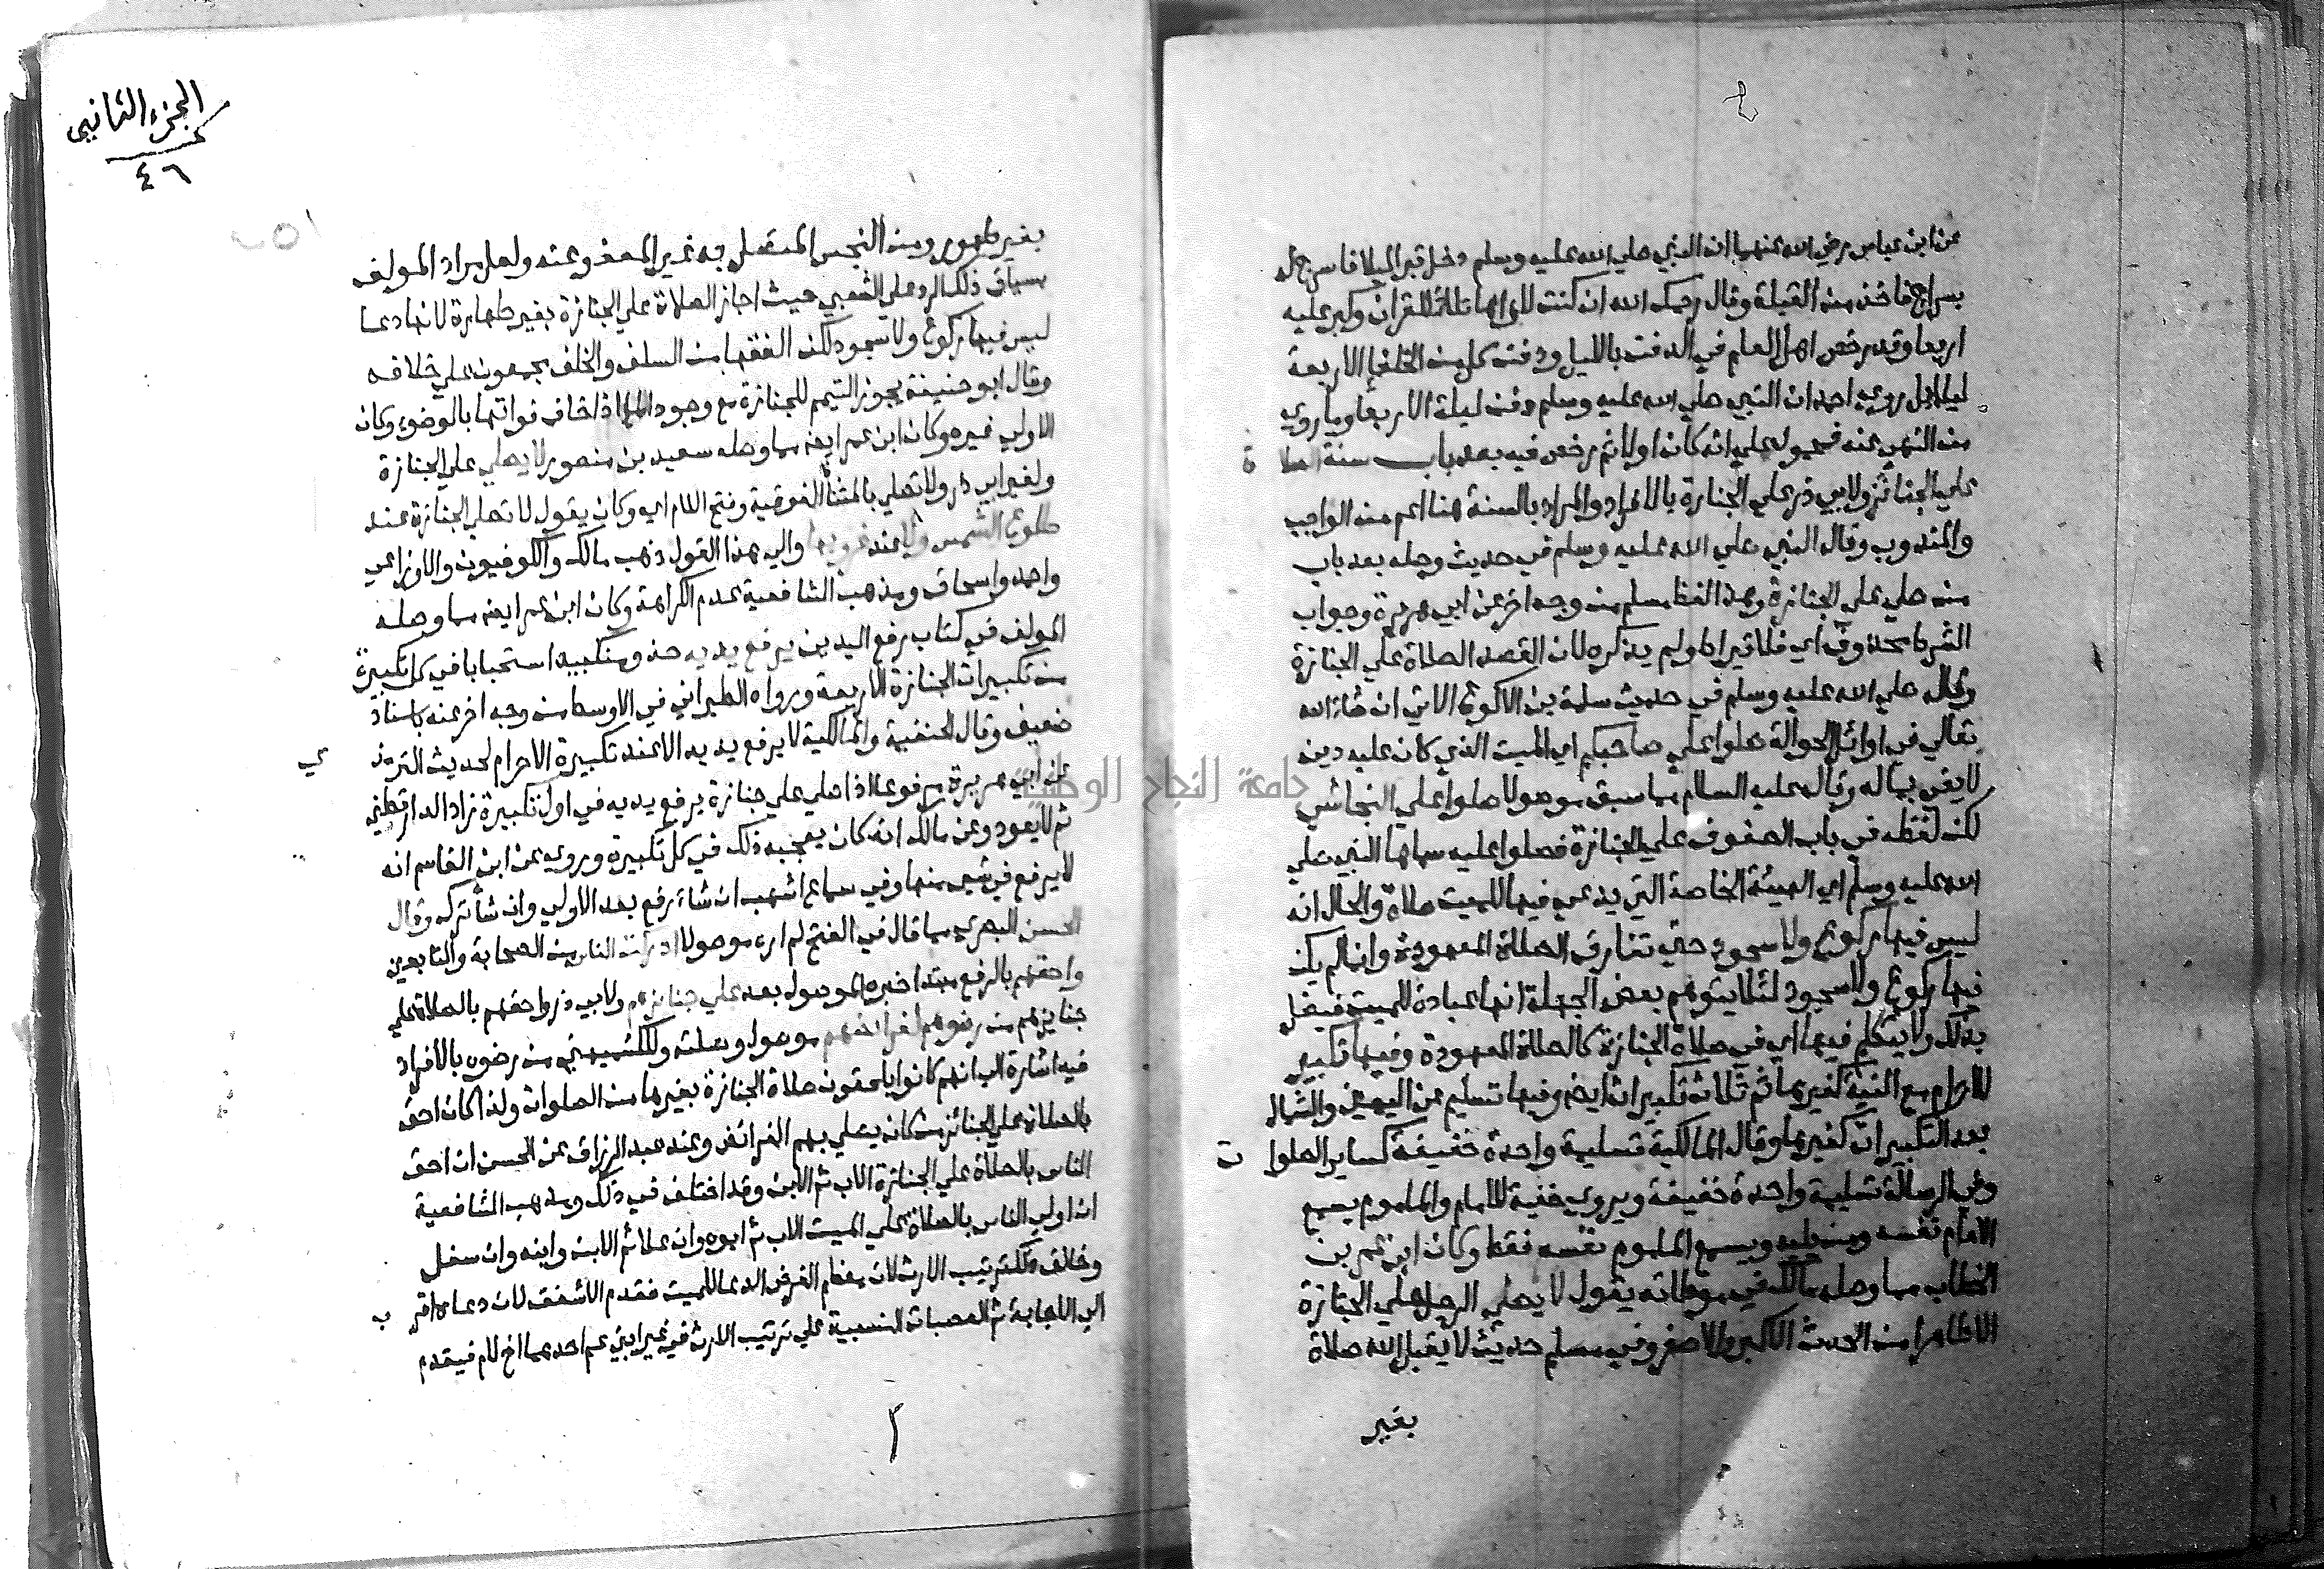 عن ابن عباس رضي الله عنهما ان النبي صلي الله عليه وسلم دخل قبر اليلا فاسرج له
بسراج فاخذ من القبلة وقال رحمك الله ان كنت لاواها تلاء للقران وكبر عليه
اربعا وقد رخص اهل العلم في الدفن بالليل ودفن كل من الخلفا الاربعة
ليلا بل روي احمد ان النبي صلي الله عليه وسلم دفن ليلة الاربعا وما روي
من النهي عنه فمحمول علي انه كان اولا ثم رخص فيه بعد باب سنة الصلا ة
علي الجنائز ولابي ذر علي الجنازة بالافراد والمراد بالسنة هنا اعم من الواجب
والمندوب وقال النبي صلي الله عليه وسلم في حديث وصله بعد باب
من صلي علي الجنازة وهذا لفظ مسلم من وجه اخر عن ابي هريرة وجواب
الشرط محذوف اي فله قيراط ولم يذكره لان القصد الصلاة علي الجنازة
وقال صلي الله عليه وسلم في حديث سلمة بن الاكوع الاتي ان شاء الله
تعالي في اوائل الحوالة صلوا علي صاحبكم اي الميت الذي كان عليه دين
لا يفي بماله وقال عليه السلام مما سبق موصولا صلوا علي النجاشي
لكن لفظه في باب الصفوف علي الجنازة فصلوا عليه سماها النبي صلي
الله عليه وسلم اي الهيئة الخاصة التي يدعي فيها للميت صلاة والحال انه
ليس فيها ركوع ولا سجود حتي تفارق الصلاة المعهودة وانما لم يكن
فيها ركوع ولا سجود لئلا يتوهم بعض الجهلة انها عبادة للميت فيضل
بذلك ولا يتكلم فيها اي في صلاة الجنازة كالصلاة المعهودة وفيها تكبير
للاحرام مع النية كغيرها ثم ثلاث تكبيرات ايضا وفيها تسليم عن اليمين والشمال
بعد التكبيرات كغيرها وقال المالكية تسليمة واحدة خفيفة كساير الصلوا ت
وفي الرسالة تسليمة واحدة خفيفة ويروي خفية للامام والماموم يسمع
الامام نفسه ومن يليه ويسمع الماموم نفسه فقط وكان ابن عمر بن
الخطاب مما وصله مالك في موطائه يقول لا يصلي الرجل علي الجنازة
الا طاهرا من الحدث الاكبر والاصغر وفي مسلم حديث لا يقبل الله صلاة
بغير
الجزء الثاني
٤٦
بغير طهور ومن النجس المتصل به غير المعفو عنه ولعل مراد المولف
بسياق ذلك الرد علي الشعبي حيث اجاز الصلاة علي الجنازة بغير طهارة لانها دعا
ليس فيها ركوع ولا سجود لكن الفقها من السلف والخلف مجمعون علي خلافه
وقال ابو حنيفة يجوز التيمم للجنازة مع وجود الما اذا خاف فواتها بالوضوء وكان
الاولي غيره وكان ابن عمر ايضا مما وصله سعيد بن منصور لا يصلي علي الجنازة
ولغير ابي ذر ولا تصلي بالمثناة الفوقية وفتح اللام اي وكان يقول لا تصلي الجنازة عند
طلوع الشمس ولا عند غروبها والي هذا القول ذهب مالك والكوفيون والاوزاعي
واحمد واسحاق ومذهب الشافعية عدم الكراهة وكان ابن عمر ايضا مما وصله
المولف في كتاب رفع اليدين يرفع يديه حذو منكبيه استحبابا في كل تكبيرة
من تكبيرات الجنازة الاربعة ورواه الطبراني في الاوسط من وجه اخر عنه باسناد
ضعيف وقال الحنفية والمالكية لا يرفع يديه الا عند تكبيرة الاحرام لحديث الترمذ ي
عن ابي هريرة مرفوعا اذا صلي علي جنازة يرفع يديه في اول تكبيرة زاد الدارقطني
ثم لا يعود وعن مالك انه كان يعجبه ذلك في كل تكبيرة وروي عن ابن القاسم انه
لا يرفع في شي منها وفي سماع اشهب ان شاء رفع بعد الاولي وان شا ترك وقال
الحسن البصري مما قال في الفتح لم اره موصولا ادركت الناس من الصحابة والتابعين
واحقهم بالرفع مبتدا خبره الموصول بعد علي جنايزهم ولابي ذر واحقهم بالصلاة علي
جنايزهم من رضوهم لفرائضهم موصول وصلته وللكشميهني من رضوه بالافراد
فيه اشارة الي انهم كانوا يلحقون صلاة الجنازة بغيرها من الصلوات ولذا كان احق
بالصلاة علي الجنائز من كان يصلي بهم الفرائض وعند عبد الرزاق عن الحسن ان احق
الناس بالصلاة علي الجنازة الاب ثم الابن وقد اختلف في ذلك ومذهب الشافعية
ان اولي الناس بالصلاة علي الميت الاب ثم ابوه وان علا ثم الابن وابنه وان سفل
وخالف ذلك ترتيب الارث لان معظم الغرض الدعا للميت فقدم الاشفق لان دعاه اقر ب
الي الاجابة ثم العصبات النسبية علي ترتيب الارث في غير ابني عم احدهما اخ لام فيقدم
جامعة النجاح الوطنية